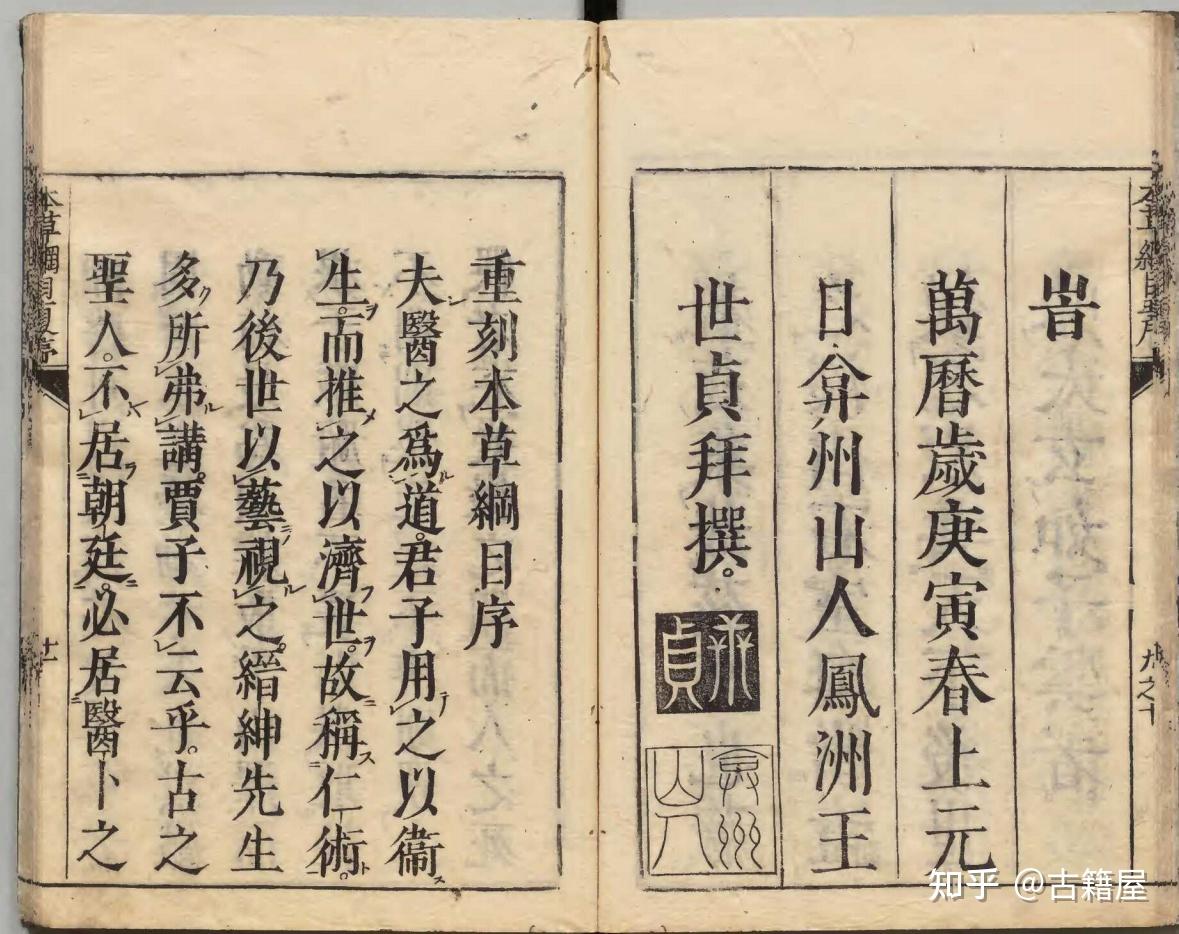 旹
萬曆歲庚寅春上元
日弇州山人鳳洲王
世貞拜撰。
弇州
山人
重刻本草綱目序
夫醫之爲道。君子用之以衞
生。而推之以濟世。故稱仁術。
乃後世以藝視之。縉紳先生
多所弗講。賈子不云乎。古之
聖人。不居朝廷。必居醫卜之
知乎 @古籍屋